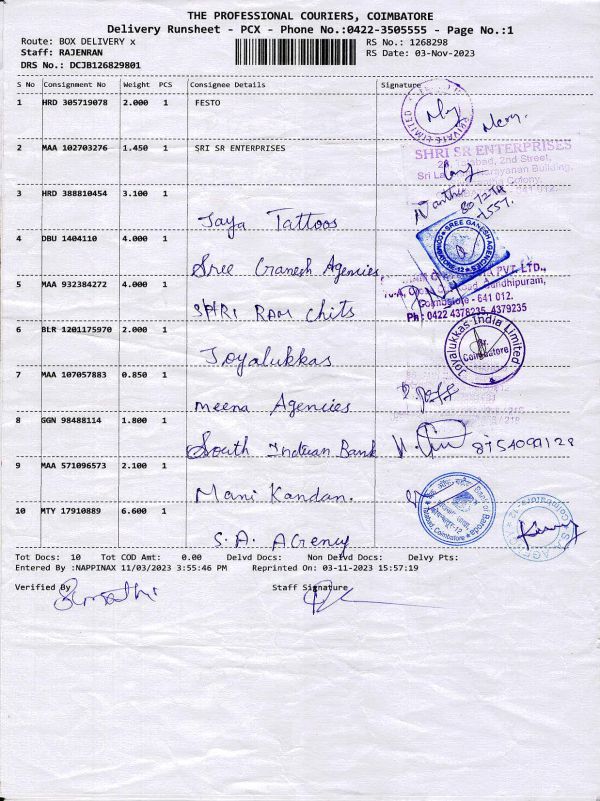 THE PROFESSIONAL COURIERS, COIMBATORE
Delivery Runsheet - PCX - Phone No.:0422-3505555 - Page No.:1
Route: BOX DELIVERY x RS No.: 1268298
Staff: RAJENRAN RS Date: 03-Nov-2023
DRS No.: DCJB126829801
S No Consignment No Weight PCS Consignee Details Signature
1 HRD 305719078 2.000 1 FESTO
PRIVATE LIMITED
2 MAA 102703276 1.450 1 SRI SR ENTERPRISES
SHRI SR ENTERPRISES
2nd Street,
Narayanan Building,
Colony,
641 012.
3 HRD 388810454 3.100 1
Jaya Tattoos
4 DBU 1404110 4.000 1
SREE GANESH AGENCIES
COIMBATORE-12
Sree Ganesh Agencies
5 MAA 932384272 4.000 1
PVT. LTD.,
Road, Gandhipuram,
Coimbatore - 641 012.
Ph : 0422 4378235, 4379235
SHRI RAM Chits
6 BLR 1201175970 2.000 1
Joyalukkas India Limited
Br.
Coimbatore
Joyalukkas
7 MAA 107057883 0.850 1
meena Agencies
8 GGN 98488114 1.800 1
South Induan Bank 8754099128
9 MAA 571096573 2.100 1
Bank of Baroda
Mani Kandan.
10 MTY 17910889 6.600 1
S.A. AGENCY
S. A. AGency
Tot Docs: 10 Tot COD Amt: 0.00 Delvd Docs: Non Delvd Docs: Delvy Pts:
Entered By :NAPPINAX 11/03/2023 3:55:46 PM Reprinted On: 03-11-2023 15:57:19
Verified By Staff Signature
Sumathi